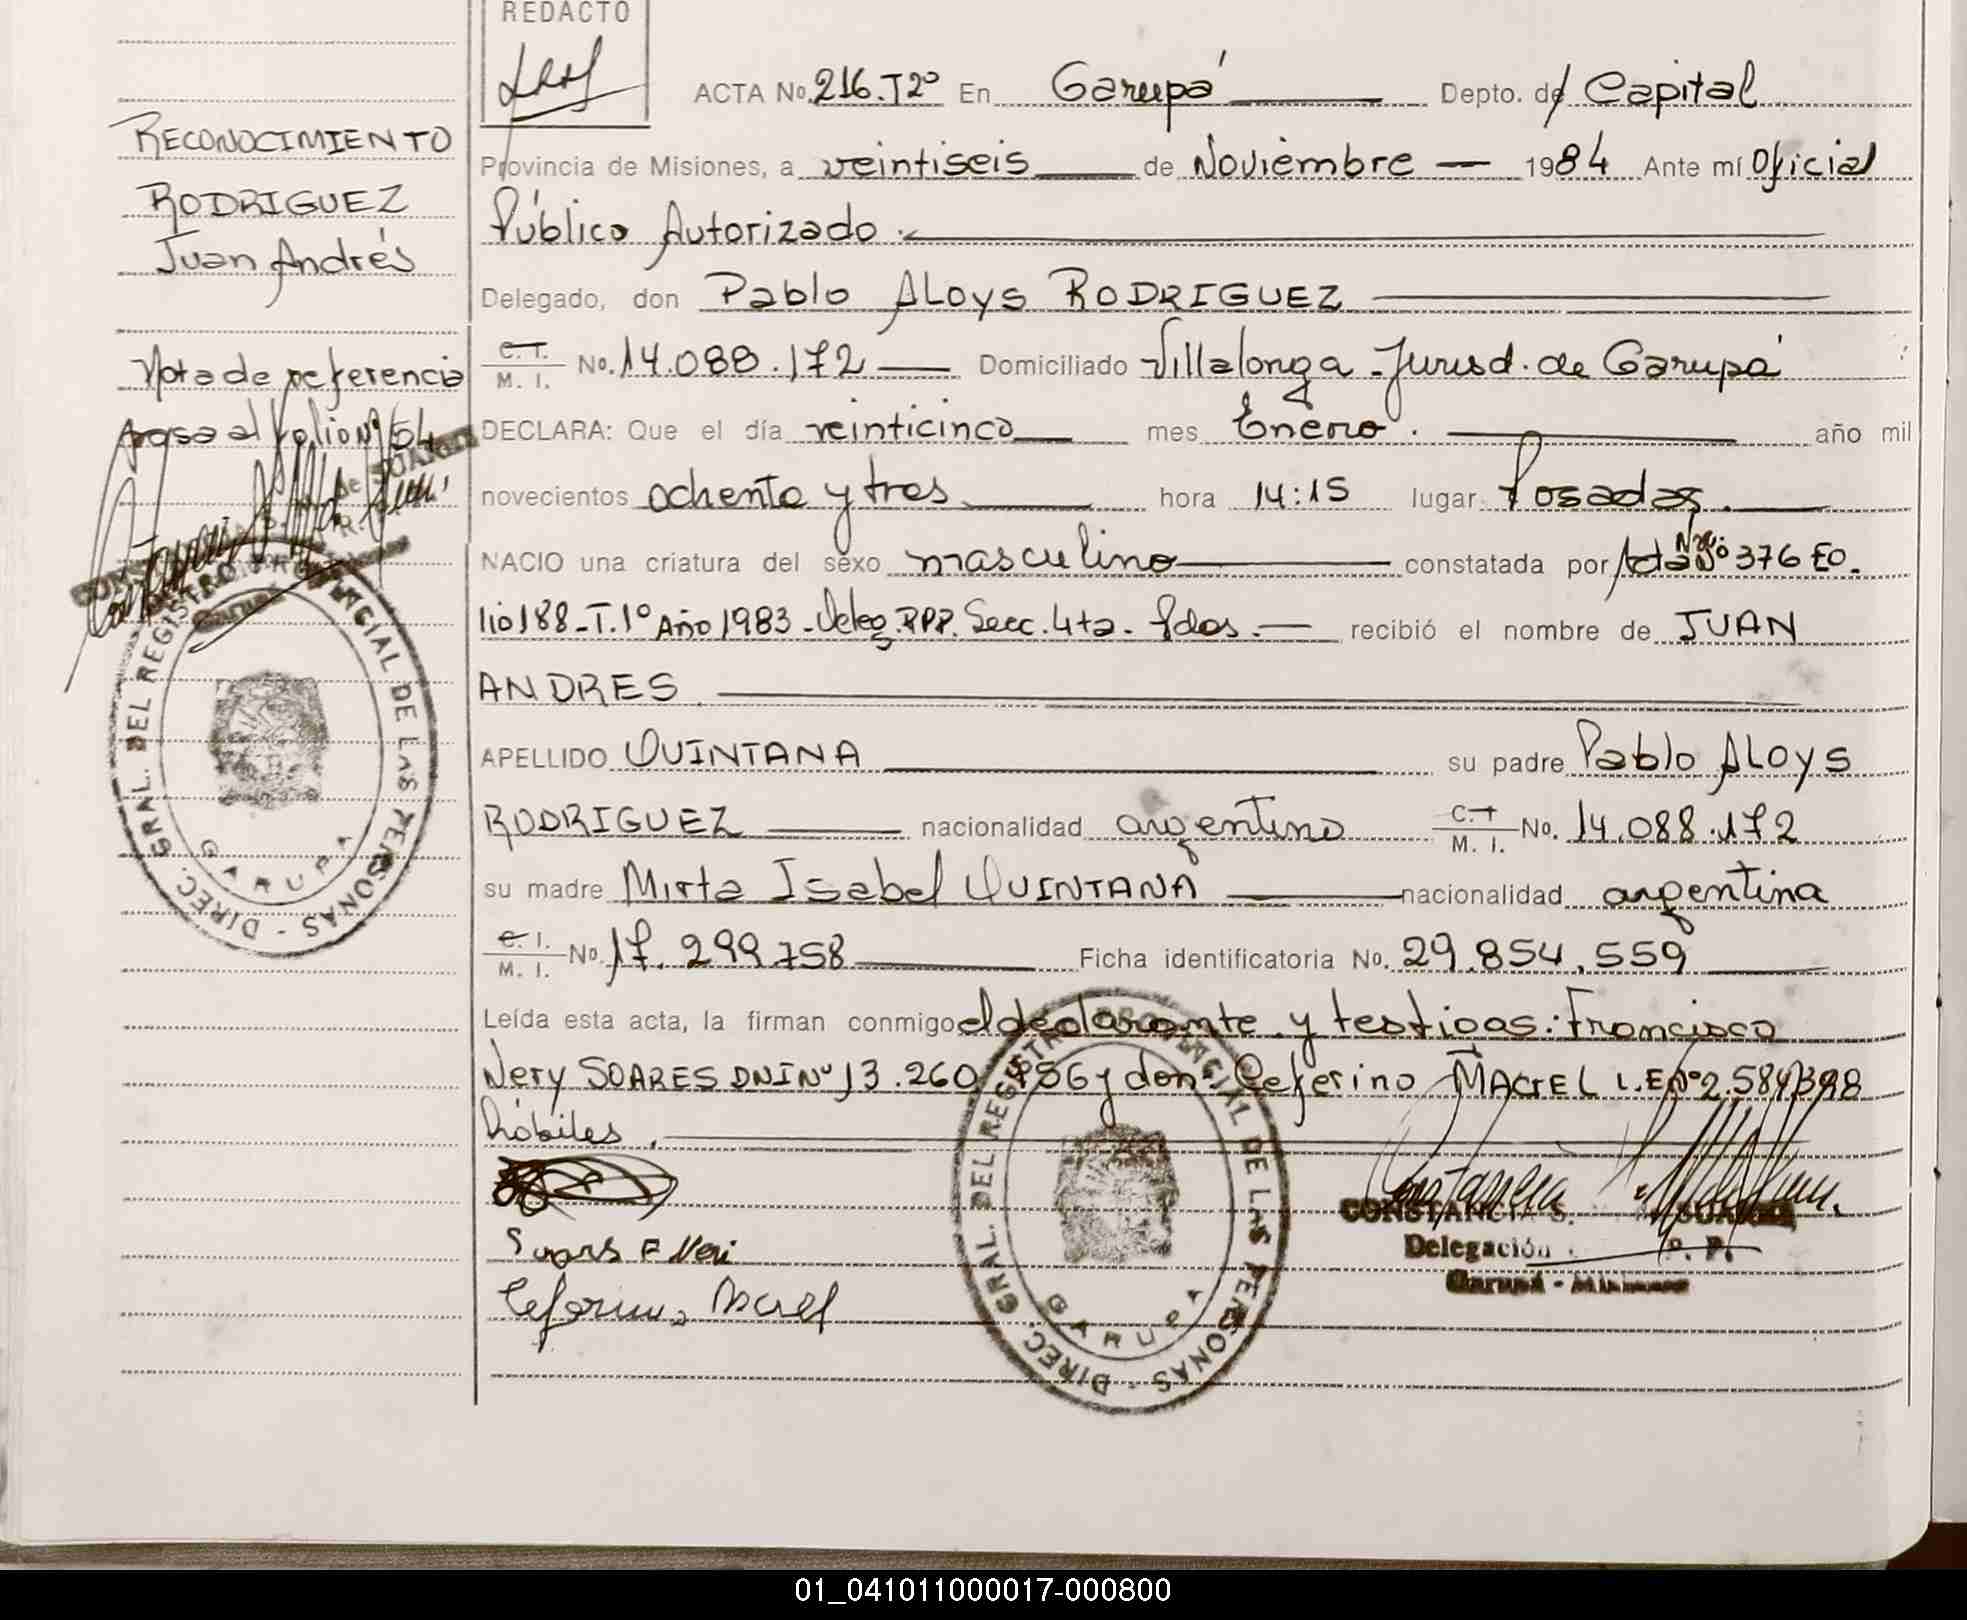 REDACTO
ACTA No. 216.T2º En Garupá Depto. de Capital
RECONOCIMIENTO
RODRIGUEZ
Juan Andrés
Nota de referencia
pasa al folio Nº
Provincia de Misiones, a veintiseis de Noviembre 1984 Ante mí Oficial
Público Autorizado.
Delegado, don Pablo ALoys RODRIGUEZ
C. I. M. I. No. 14.088.172 Domiciliado Villalonga - Jurisd. de Garupá
DECLARA: Que el día veinticinco mes Enero. año mil
novecientos ochenta y tres hora 14:15 lugar Posadas.
NACIO una criatura del sexo masculino constatada por Acta Nº 376 FO.
lio 188 - T. 1º Año 1983 - Deleg. RPP. Secc. 4ta. Pdas. recibió el nombre de JUAN
ANDRES
APELLIDO QUINTANA su padre Pablo ALoys
RODRIGUEZ nacionalidad argentino C. I. M. I. No. 14.088.172
su madre Mirta Isabel QUINTANA nacionalidad argentina
C. I. M. I. No. 17.299.758 Ficha identificatoria No. 29.854.559
Leída esta acta, la firman conmigo el declarante y testigos: Francisco
Nery SOARES DNI Nº 13.260.956 y don Ceferino MACIEL L.E. Nº 2.584.398
hábiles.
Soares F Neri
Ceferino Maciel
CONSTANCIA S.
Delegación R. P.
Garupá - Misiones
DIREC. GRAL. DEL REGISTRO PROVINCIAL DE LAS PERSONAS -
GARUPA
DIREC. GRAL. DEL REGISTRO PROVINCIAL DE LAS PERSONAS -
GARUPA
01_041011000017-000800